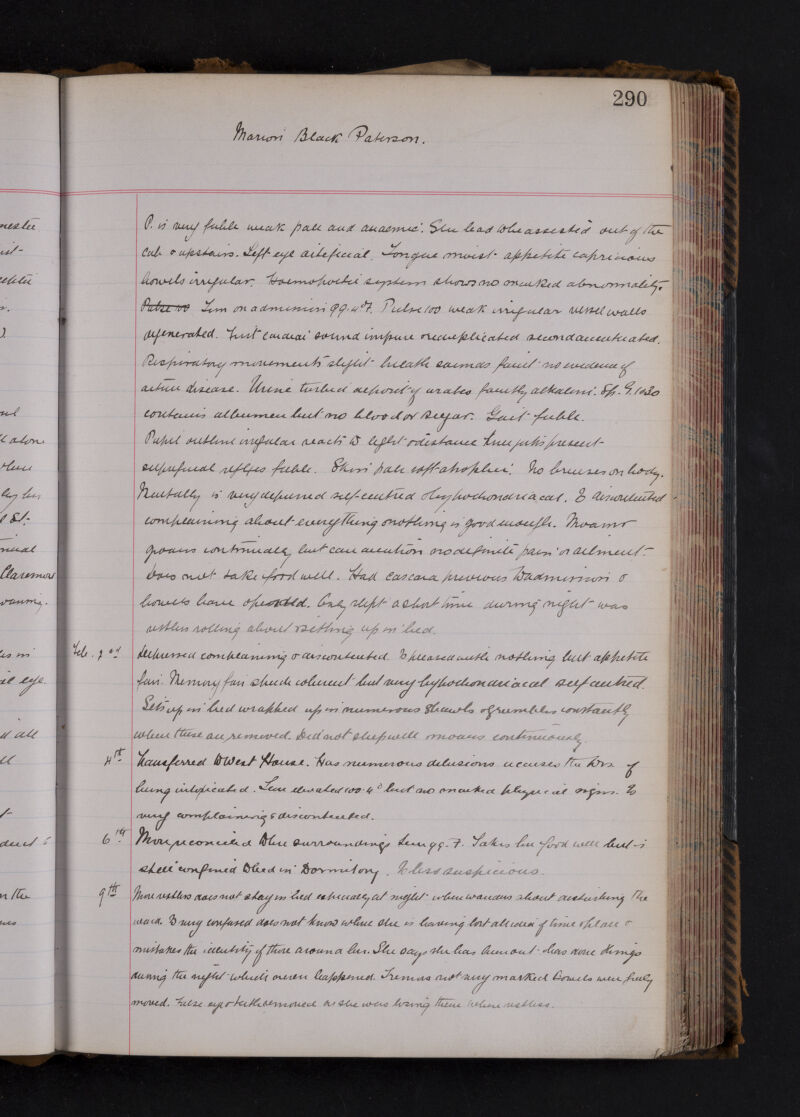 290
Marion Black Paterson.
P. is very feeble weak pale and anaemic. She had to be assisted out of the
cab & upstairs. Left eye artificial. Tongue moist appetite capricious
bowels irregular. Haemopoietic system shows no marked abnormality.
Pulse 100 Tem on admission 99.4°F. Pulse 100 weak irregular vessel walls
degenerated. First cardiac sound impure reduplicated second accentuated.
Respiratory movements slight breath sounds faint no evidence of
active disease. Urine turbid deposit of urates faintly alkaline. Sp. G. 1030
contains albumen but no blood or sugar. Gait feeble.
Pupil outline irregular reacts to light & distance knee jerks present
superficial reflexes feeble. Skin pale soft atrophic. No bruises on body.
Mentally is very depressed self-centred & hypochondriacal. Is discontented
complaining about everything & nothing is good enough. Moans &
groans continually but can mention no definite pain or ailment.
Does not take food well. Had cascara previous to admission &
bowels have operated. Only slept a short time during night was
restless rolling about & sitting up in bed.
Feb. 2nd Depressed complaining & discontented. Is pleased with nothing but appetite
fair. Memory fair speech coherent but very hypochondriacal self centred.
Sits up in bed wrapped up in numerous shawls & grumbles constantly
when these are removed. Did not sleep well moans continuously.
4th Transferred to West House. Has numerous delusions accuses the Drs of
being intoxicated. Tem elevated 100.4° but no marked physical signs. Is
very complaining & discontented.
6th More reconciled to her surroundings tem 99.7. Takes her food well but is
still confined to bed in Dormitory. Is less suspicious.
9th More restless does not stay in bed especially at night when wanders about disturbing the
ward. Is very confused does not know where she is having lost all idea of time & place &
mistakes the identity of those around her. She says she has been out & has done things
during the night which never happened. Tremors not very marked Bowels were freely
moved. False eye & teeth removed as she was losing them when restless.